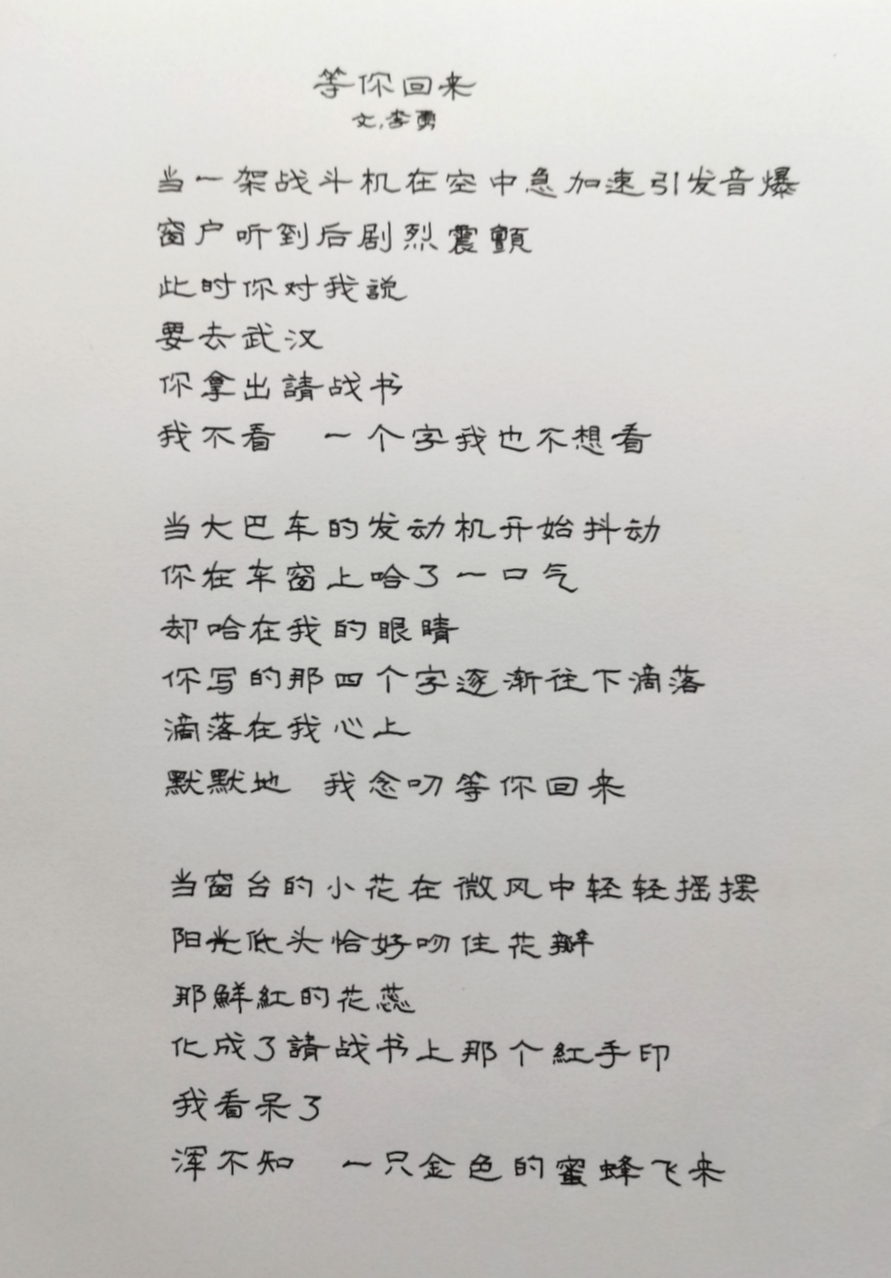 等你回来
文,李勇
当一架战斗机在空中急加速引发音爆
窗户听到后剧烈震顫
此时你对我説
要去武汉
你拿出請战书
我不看 一个字我也不想看
当大巴车的发动机开始抖动
你在车窗上哈了一口气
却哈在我的眼睛
你写的那四个字逐渐往下滴落
滴落在我心上
默默地 我念叨等你回来
当窗台的小花在微风中轻轻摇摆
阳光低头恰好吻住花瓣
那鮮紅的花蕊
化成了請战书上那个紅手印
我看呆了
浑不知 一只金色的蜜蜂飞来